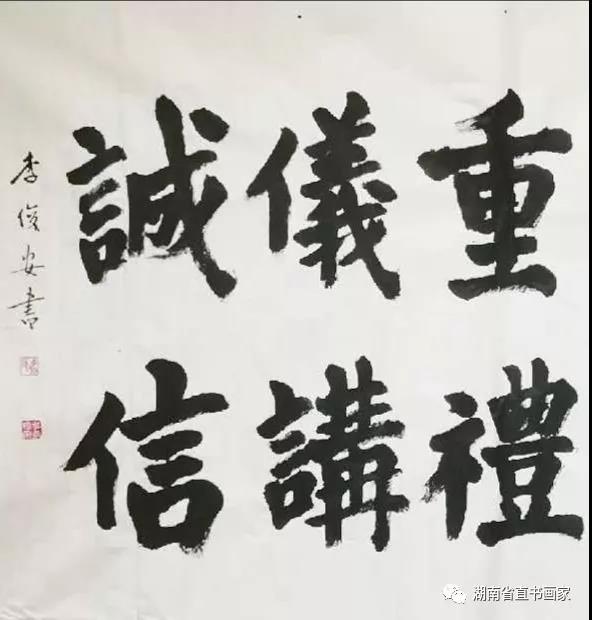 重禮
儀講
誠信
李俊安書
湖南省直书画家